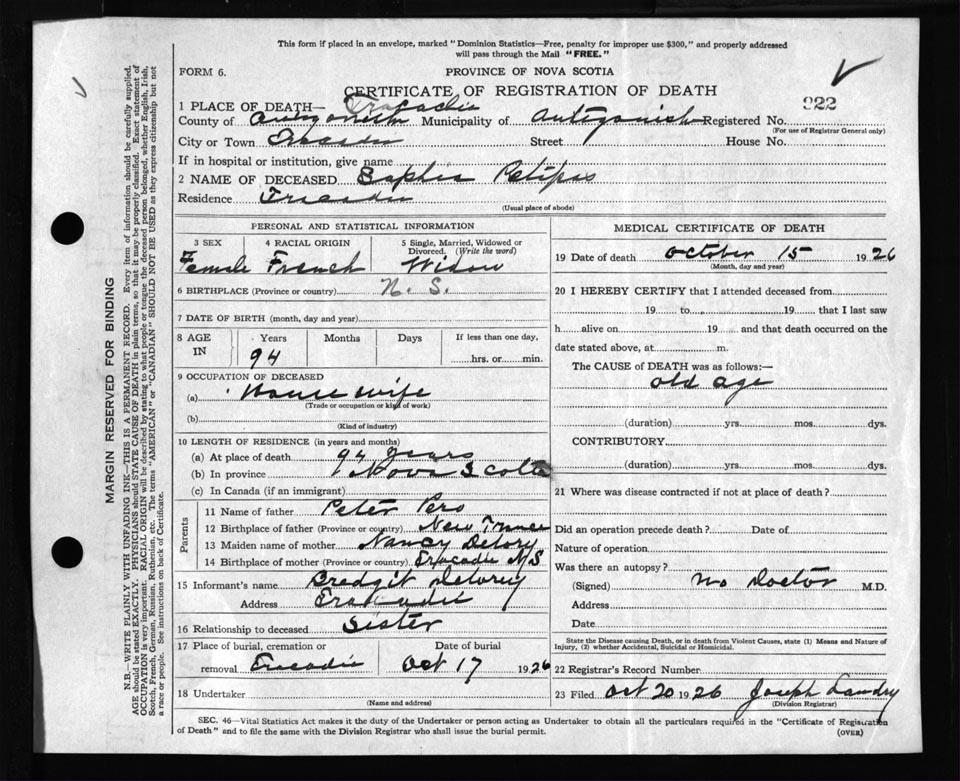 This form if placed in an envelope, marked "Dominion Statistics—Free, penalty for improper use $300," and properly addressed
will pass through the Mail "FREE."
FORM 6.
PROVINCE OF NOVA SCOTIA
CERTIFICATE OF REGISTRATION OF DEATH
922
1 PLACE OF DEATH— Tracadie
County of Antigonish Municipality of Antigonish Registered No.
(For use of Registrar General only)
City or Town Street House No.
If in hospital or institution, give name
2 NAME OF DECEASED Sophia Petipas
Residence
(Usual place of abode)
PERSONAL AND STATISTICAL INFORMATION
3 SEX 4 RACIAL ORIGIN 5 Single, Married, Widowed or
Divorced. (Write the word)
Female French Widow
6 BIRTHPLACE (Province or country) N. S.
7 DATE OF BIRTH (month, day and year)
8 AGE IN Years Months Days If less than one day,
94 hrs. or min.
9 OCCUPATION OF DECEASED
(a) House wife
(Trade or occupation or kind of work)
(b)
(Kind of industry)
10 LENGTH OF RESIDENCE (in years and months)
(a) At place of death 94 years
(b) In province Nova Scotia
(c) In Canada (if an immigrant)
Parents
11 Name of father Peter
12 Birthplace of father (Province or country) New
13 Maiden name of mother Nancy Delory
14 Birthplace of mother (Province or country) N S
15 Informant's name Bredgit Delorey
Address
16 Relationship to deceased Sister
17 Place of burial, cremation or Date of burial
removal Oct 17 1926
18 Undertaker
(Name and address)
MEDICAL CERTIFICATE OF DEATH
19 Date of death October 15 1926
(Month, day and year)
20 I HEREBY CERTIFY that I attended deceased from
19 to 19 that I last saw
h alive on 19 and that death occurred on
date stated above, at m.
The CAUSE of DEATH was as follows:—
old age
(duration) yrs. mos. dys.
CONTRIBUTORY
(duration) yrs. mos. dys.
21 Where was disease contracted if not at place of death?
Did an operation precede death? Date of
Nature of operation
Was there an autopsy?
(Signed) No Doctor M.D.
Address
Date
State the Disease causing Death, or in death from Violent Causes, state (1) Means and Nature of
Injury, (2) whether Accidental, Suicidal or Homicidal.
22 Registrar's Record Number
23 Filed Oct 20 1926 Joseph Landry
(Division Registrar)
SEC. 46—Vital Statistics Act makes it the duty of the Undertaker or person acting as Undertaker to obtain all the particulars required in the "Certificate of Registration
of Death" and to file the same with the Division Registrar who shall issue the burial permit.
(OVER)
MARGIN RESERVED FOR BINDING
N.B.—WRITE PLAINLY WITH UNFADING INK—THIS IS A PERMANENT RECORD. Every item of information should be carefully supplied.
AGE should be stated EXACTLY. PHYSICIANS should STATE CAUSE OF DEATH in plain terms, so that it may be properly classified. Exact statement of
OCCUPATION is very important. RACIAL ORIGIN will be described by stating to what people or tongue the deceased person belonged, whether English, Irish,
Scotch, French, German, Russian, Ruthenian, etc. The terms "AMERICAN" or "CANADIAN" SHOULD NOT BE USED as they express citizenship but not
a race or people. See instructions on back of Certificate.